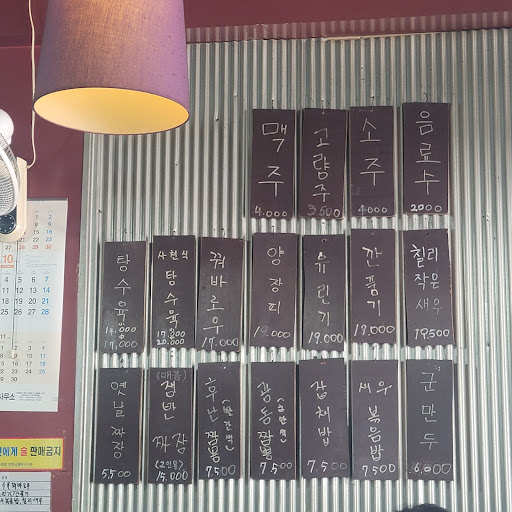 맥주 4.000
고량주 3.500
소주 4000
음료수 2000
탕수육 14.000 17,000
사천식 탕수육 17.000 20.000
꿔바로우 17.000
양장피 19.000
유린기 19.000
깐풍기 19.000
칠리작은새우 19,500
옛날짜장 5.500
(매콤) 쟁반짜장 (2인분) 15.000
후난짬뽕 7500
광동짬뽕 7.500
잡채밥 7.500
새우볶음밥 7500
군만두 6.000
10
에게 술 판매금지